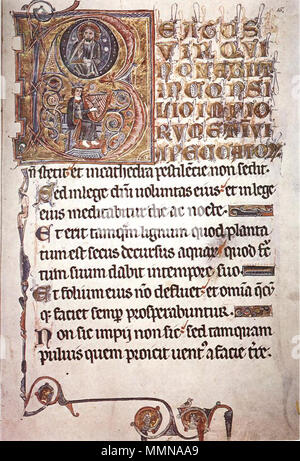 BEATUS
VIR QVI
NON ABIIT
IN CONSI
LIO IMPIO
RUM ET I VI
A PECCATOR
n stetit et in cathedra pestilencie non sedit.
Sed in lege dni voluntas eius et in lege
eius meditabitur die ac nocte.
Et erit tamqm lignum quod planta
tum est secus decursus aquar quod fc
tum suum dabit in tempore suo.
Et folium eius no defluet et omia qcq
q faciet semp prosperabuntur.
Non sic impij non sic sed tamquam
puluis quem proicit uent a facie tre.
alamy
Image ID: MMNAA9
www.alamy.com